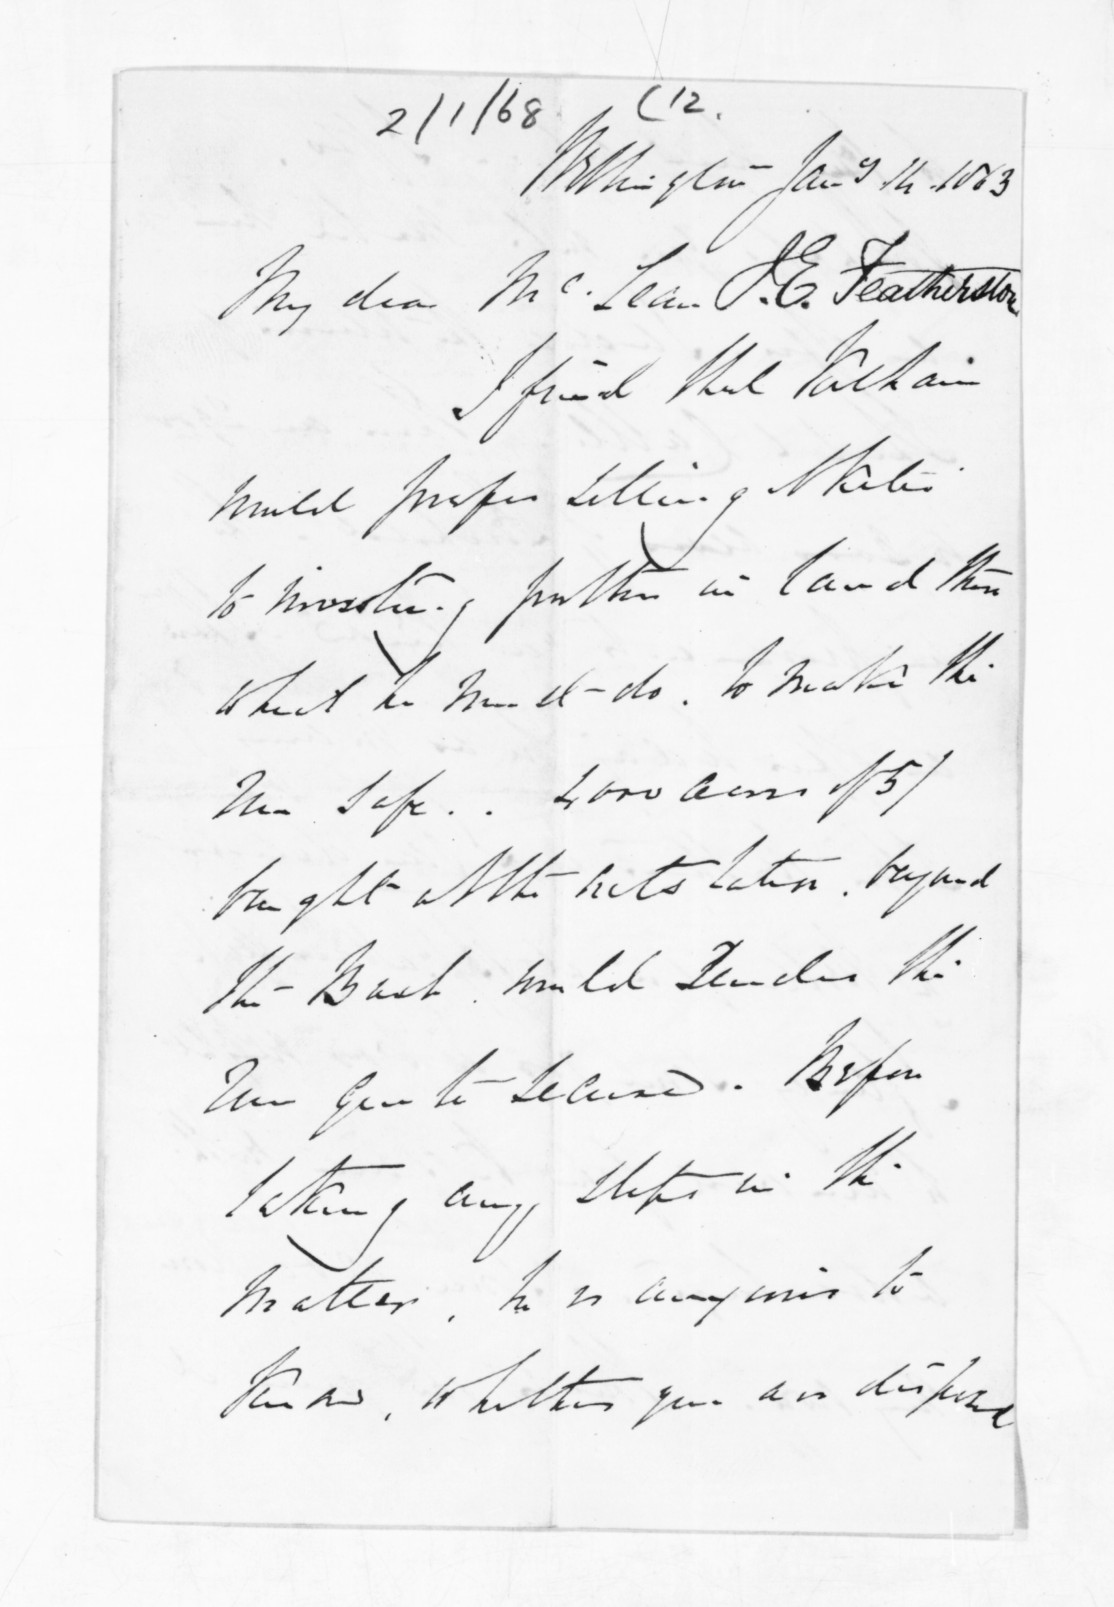 2/1/68 (12.
Wellington Jany 14. 1863
My dear McLean I.E. Featherston
I find that
would prefer selling Akitio
to investing further in land than
what he must do. to make the
run safe.. 4000 acres of 5/
bought at the out station. beyond
the Bush. would render the
run quite secure. Before
taking any steps in the
matter, he is anxious to
know, whether you are disposed